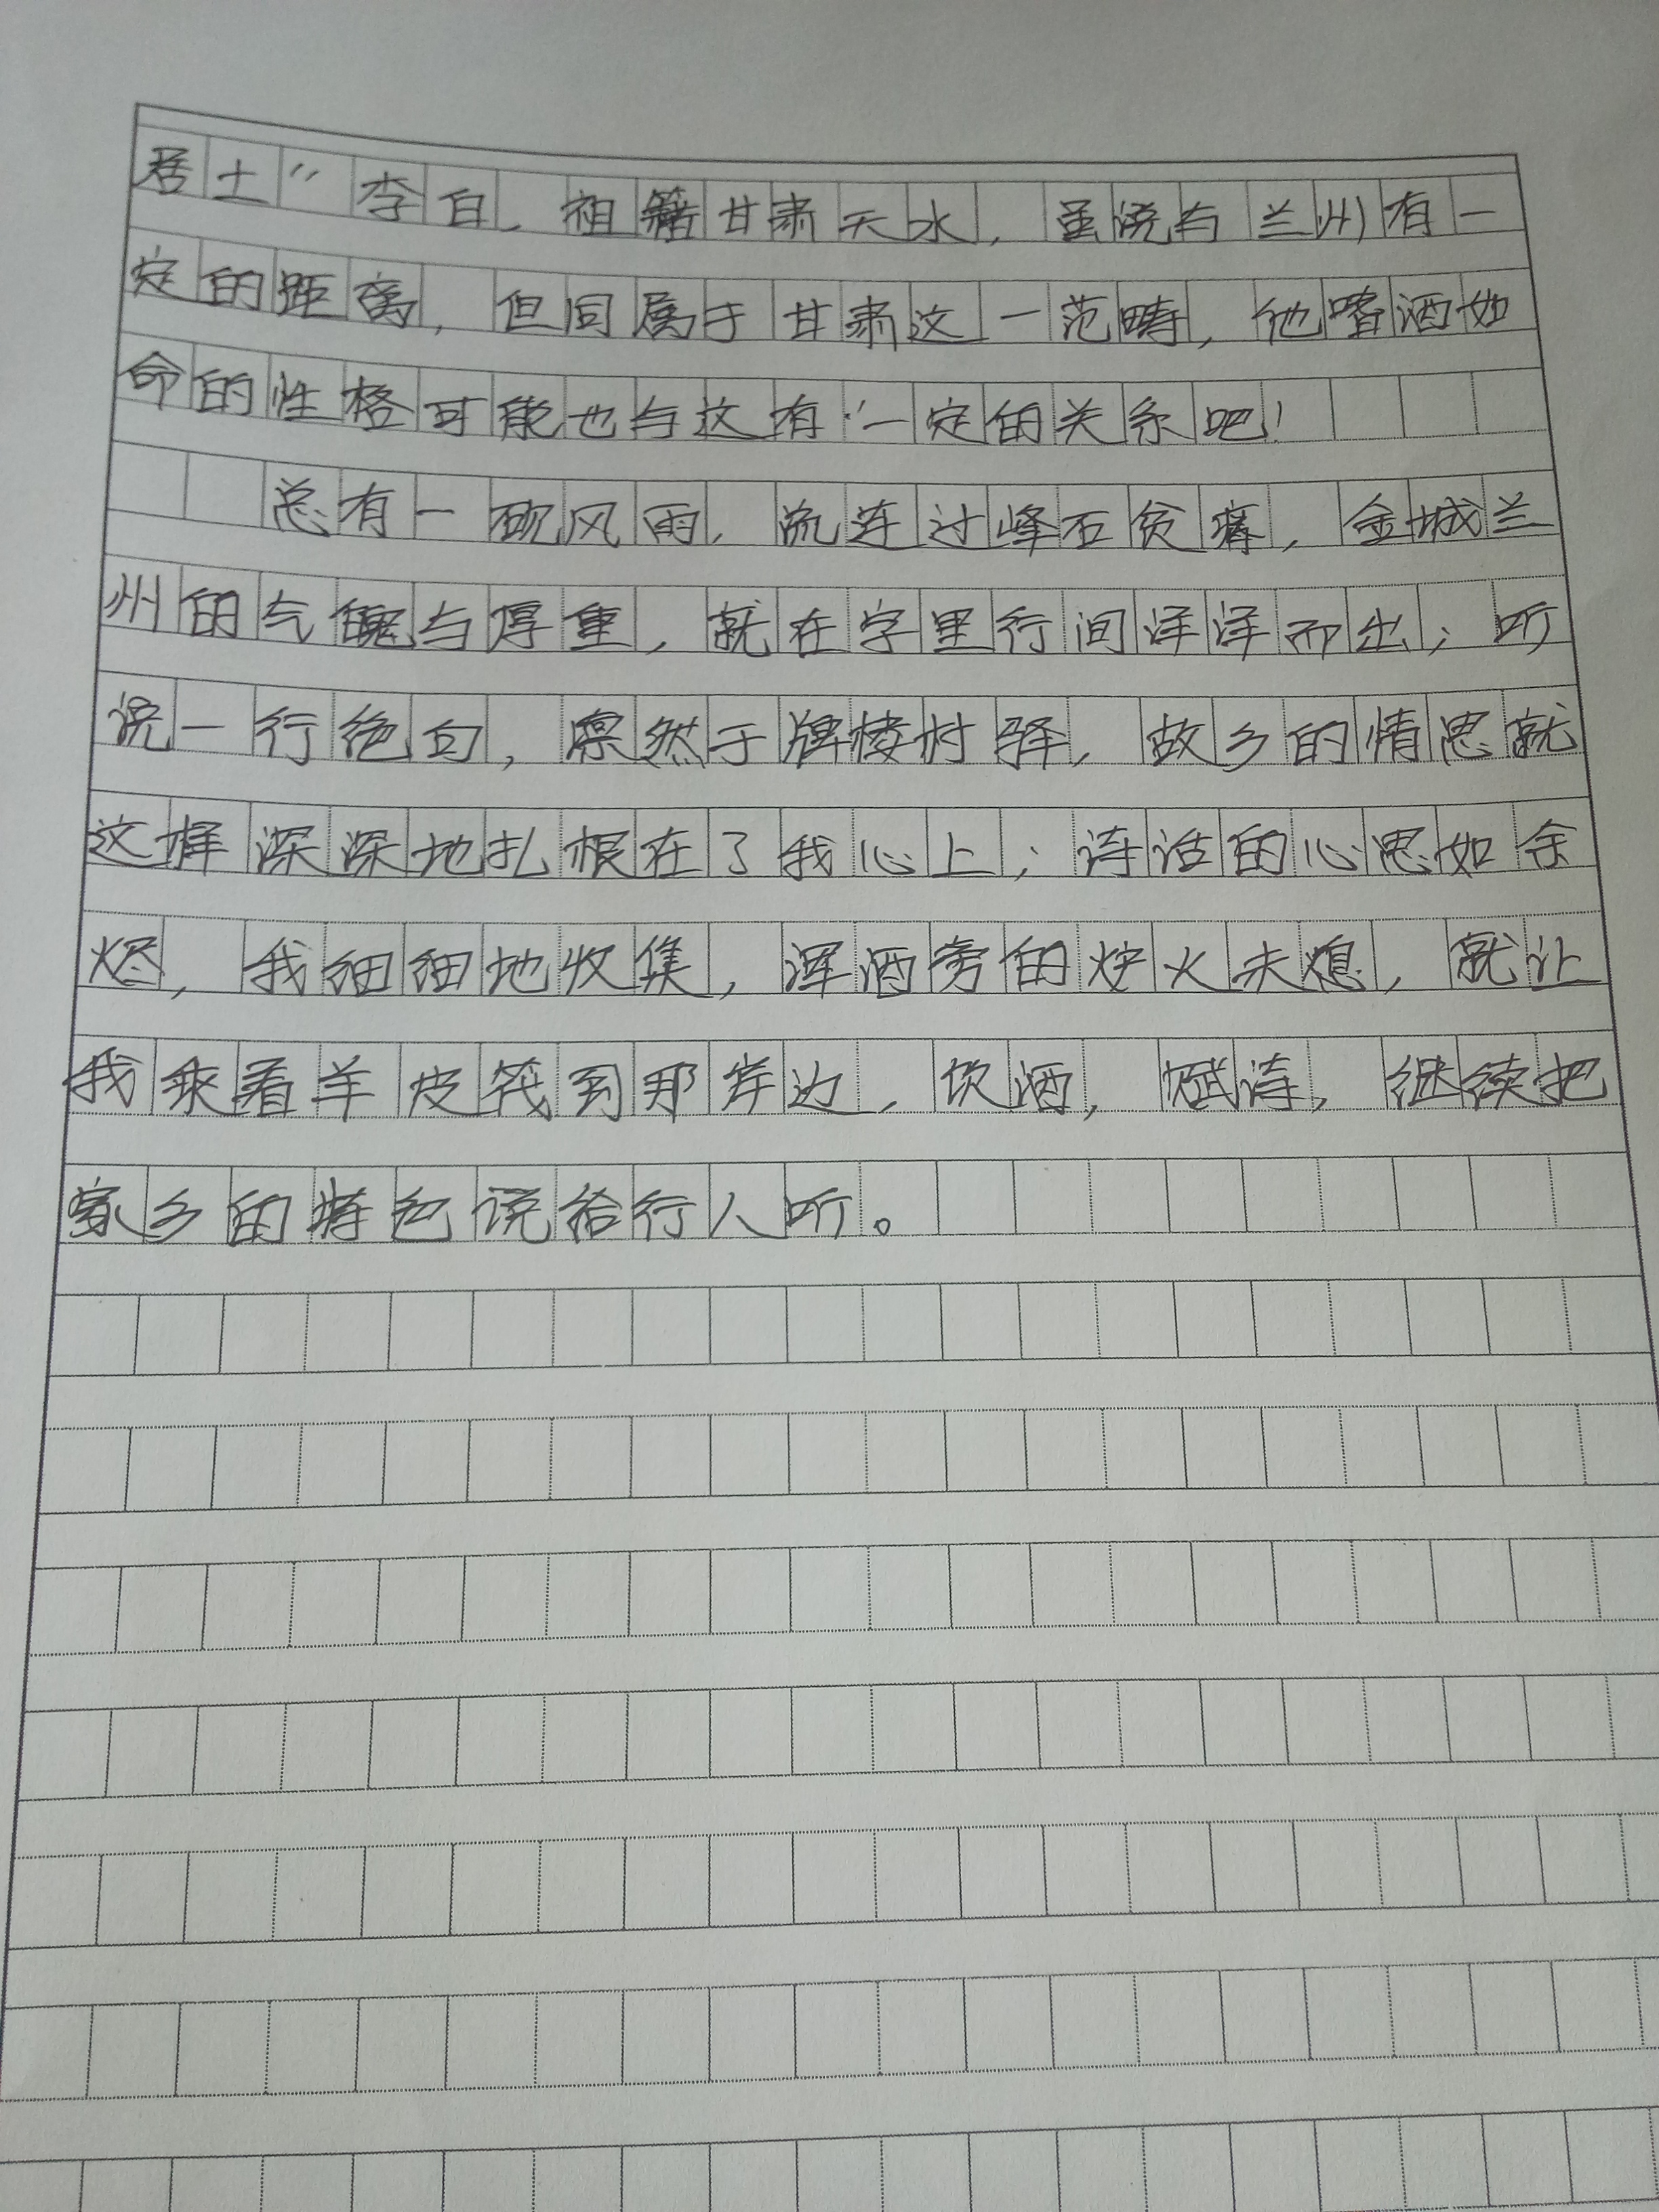 居士”李白，祖籍甘肃天水，虽说与兰州有一
定的距离，但同属于甘肃这一范畴，他嗜酒如
命的性格可能也与这有一定的关系吧！
总有一砚风雨，流连过峰石贫瘠，金城兰
州的气魄与厚重，就在字里行间洋洋而出；听
说一行绝句，凛然于牌楼村驿，故乡的情思就
这样深深地扎根在了我心上；诗话的心思如余
烬，我细细地收集，浑酒旁的炉火未熄，就让
我乘着羊皮筏到那岸边，饮酒，赋诗，继续把
家乡的特色说给行人听。